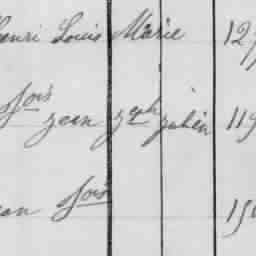 Henri Louis Marie 127
fois
jean zeph julien 119
ean fois 150